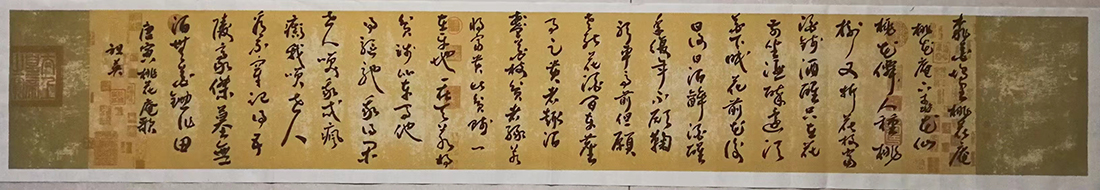 桃花塢里桃花庵
桃花庵下桃花仙
桃花仙人種桃
樹又折花枝當
酒錢酒醒只在花
前坐酒醉還須
花下眠花前花後
日復日酒醉酒醒
年復年不願鞠
躬車馬前但願
老死花酒間車塵
馬足貴者趣酒
盞花枝貧者緣若
將富貴比貧賤一
在平地一在天若將
貧賤比車馬他
得驅馳我得閑
世人笑我忒瘋
癲我笑世人
看不穿記得五
陵豪傑墓無
酒無花鋤作田
唐寅桃花庵歌
祖英